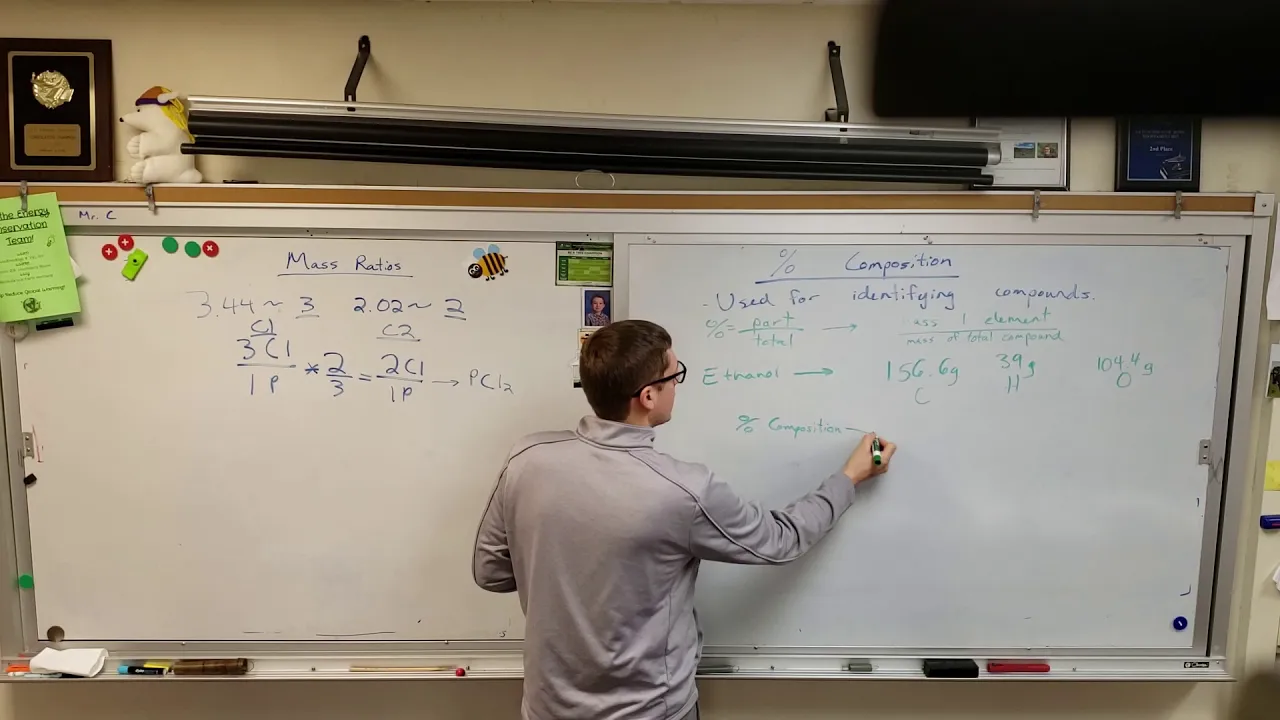 The Energy
Conservation
Team!
Reduce Global Warming!
Mr. C
Mass Ratios
3.44 ~ 3 2.02 ~ 2
C1 C2
3Cl / 1P * 2/3 = 2Cl / 1P → PCl₂
2nd Place
% Composition
- Used for identifying compounds.
%= part / total → ass 1 element / mass of total compound
Ethanol → 156.6g 39g 104.4g
C H O
% Composition